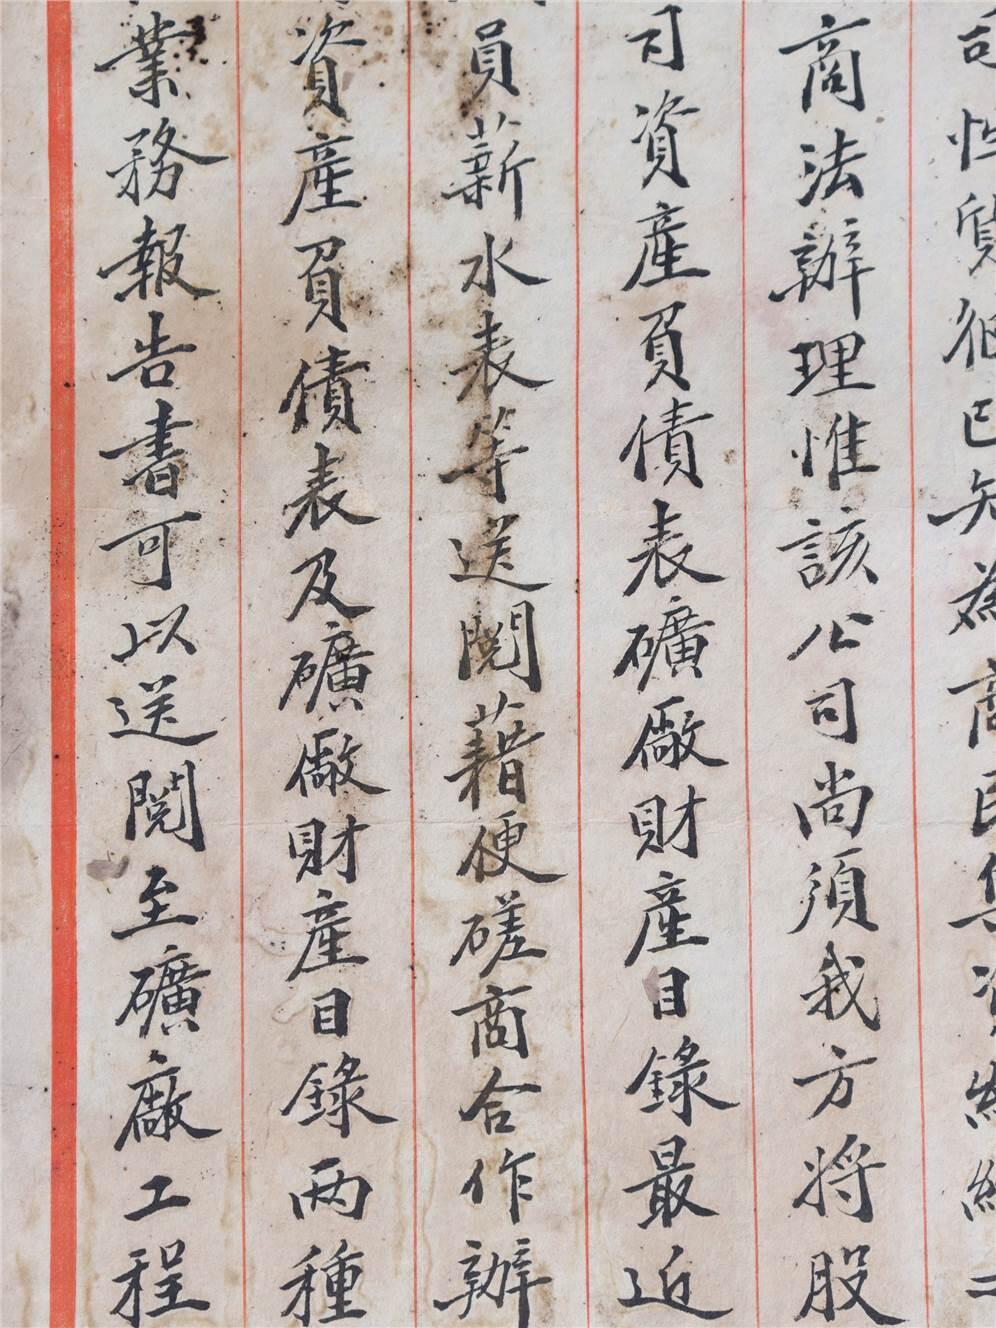 司性質彼已知為商民集資
商法辦理惟該公司尚須我方將股
司資產負債表礦廠財產目錄最近
員薪水表等送閱藉便磋商合作辦
資產負債表及礦廠財產目錄两種
業務報告書可以送閱至礦廠工程